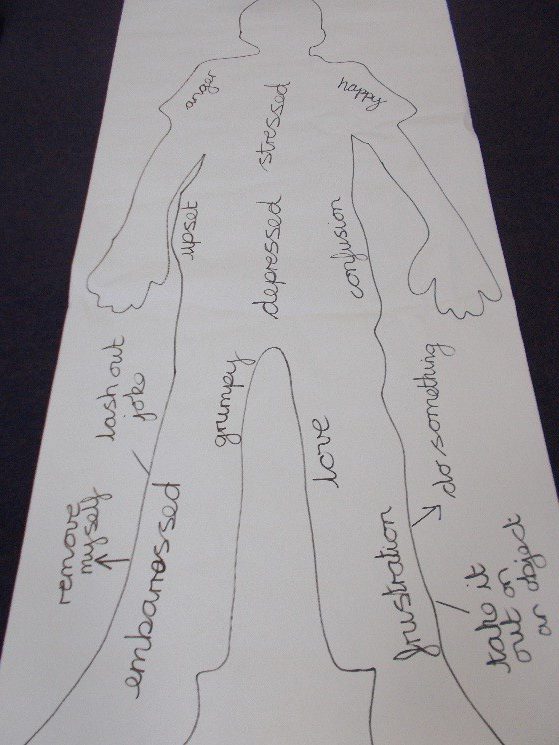 anger
happy
stressed
upset
depressed
confusion
lash out
joke
grumpy
love
do something
remove
myself
embarrassed
frustration
take it
out on
an object